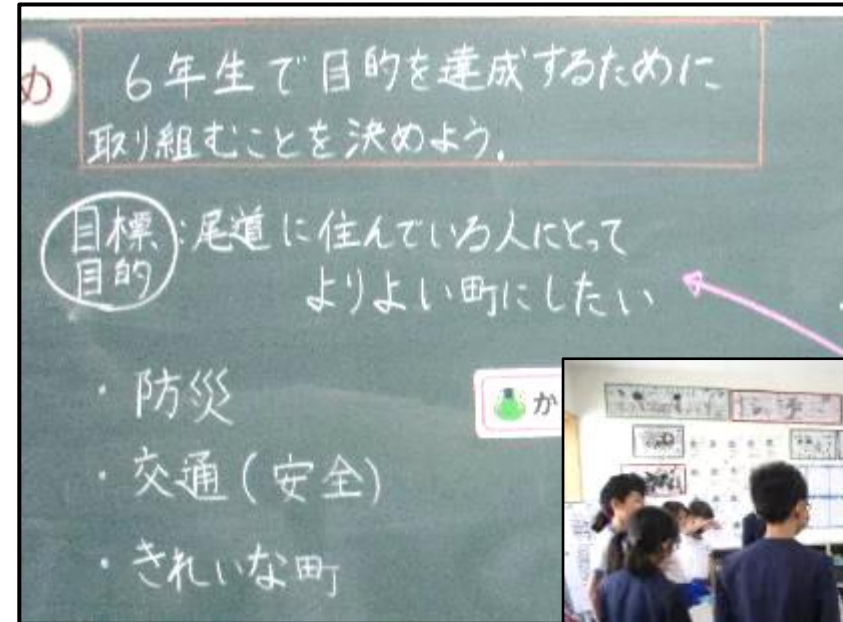 め
6年生で目的を達成するために
取り組むことを決めよう.
目標
目的
:尾道に住んでいる人にとって
よりよい町にしたい
・防災
か
・交通(安全)
・きれいな町